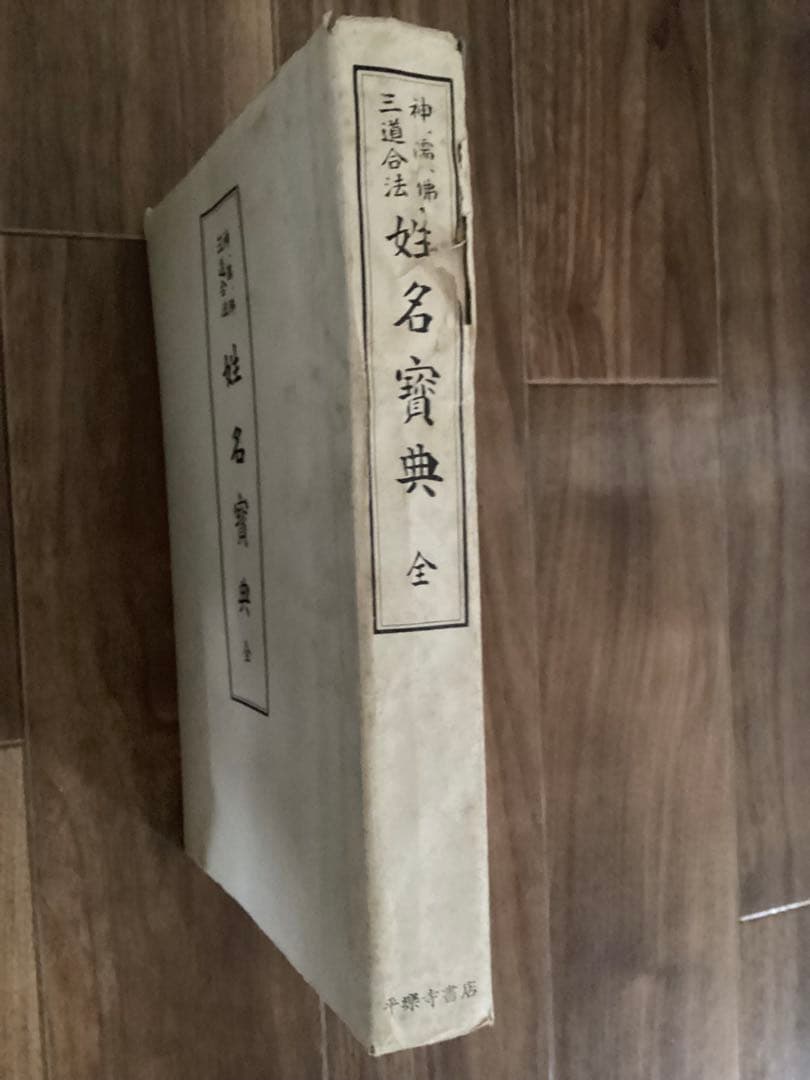 神、儒、佛、
三道合法
姓名寳典 全
平樂寺書店
神、儒、佛
三道合法
姓名寳典 全